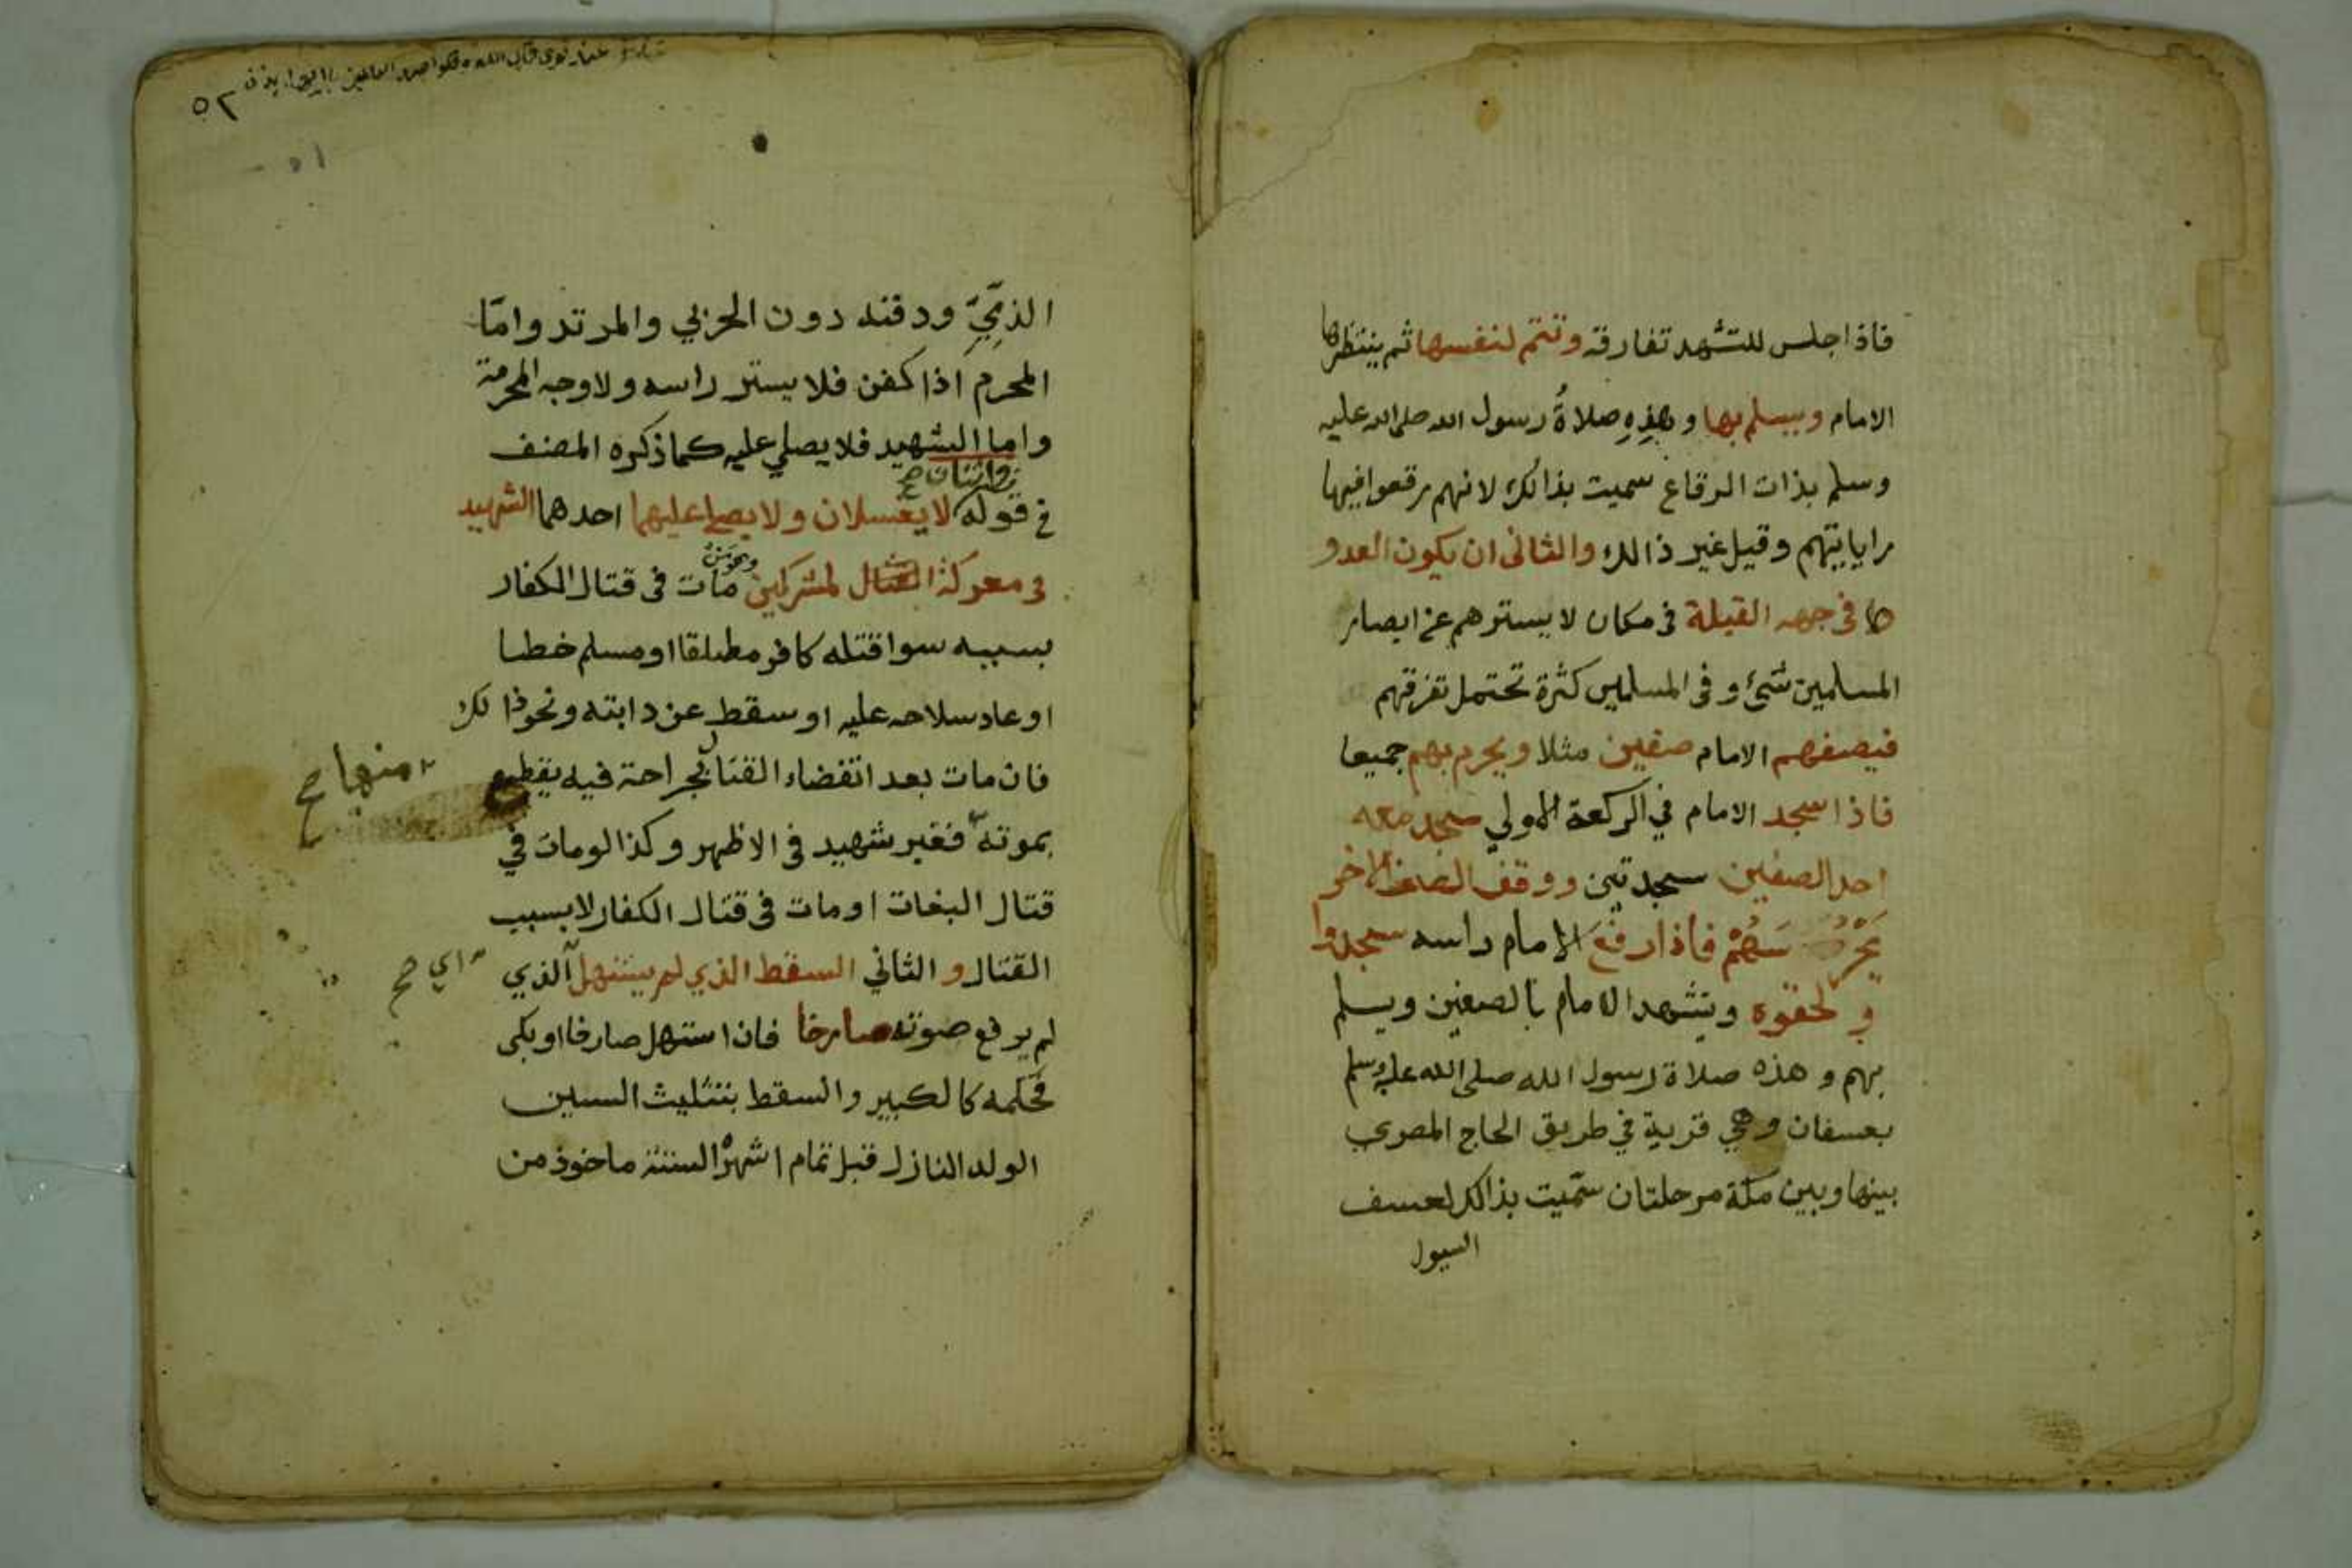 فاذا جلس للتشهد تفارقه وتتم لنفسها ثم ينتظرها
الامام ويسلم بها وهذِهِ صلاةُ رسول الله صلى الله عليه
وسلم بذات الرقاع سميت بذالك لانهم رقعوا فيها
راياتهم وقيل غير ذالك والثانى ان يكون العدو
فى جهه القبلة فى مكان لا يسترهم عن ابصار
المسلمين شئ وفى المسلمين كثرة تحتمل تفرقهم
فيصفهم الامام صفين مثلا ويحرم بهم جميعا
فاذا سجد الامام في الركعة الاولي سجد معه
احد الصفين سجدتين ووقف الصف الاخر
يَحْرُسُهُمْ فاذا رفع الامام راسه سجدوا
ولحقوه ويتشهد الامام بالصفين ويسلم
بهم وهذه صلاة رسول الله صلى الله عليه وسلم
بعسفان وهي قرية في طريق الحاج المصري
بينها وبين مكة مرحلتان سمّيت بذالك لعسف
السيول
٥٢
٥١
الذمّيِّ ودفنه دون الحربي والمرتد وامّا
المحرم اذا كفن فلا يستر راسه ولا وجه المحرمة
واما الشهيد فلا يصلي عليه كما ذكره المصنف
واثنان صح
في قوله لا يغسلان ولا يصلى عليهما احدهما الشهيد
فى معركة القتال لمشركين مات فى قتال الكفار
وهو من
بسببه سوا قتله كافر مطلقا او مسلم خطا
او عاد سلاحه عليه او سقط عن دابته ونحو ذالك
فان مات بعد انقضاء القتال بجراحة فيه يقطع
منهاج
بموته فغير شهيد فى الاظهر وكذا لو مات في
قتال البغات او مات فى قتال الكفار لا بسبب
القتال والثاني السقط الذي لم يستهل الذي
اي صح
لم يرفع صوته صارخا فان استهل صارخا او بكى
فحكمه كالكبير والسقط بتثليث السين
الولد النازل قبل تمام اشهرْ الستة ماخوذ من